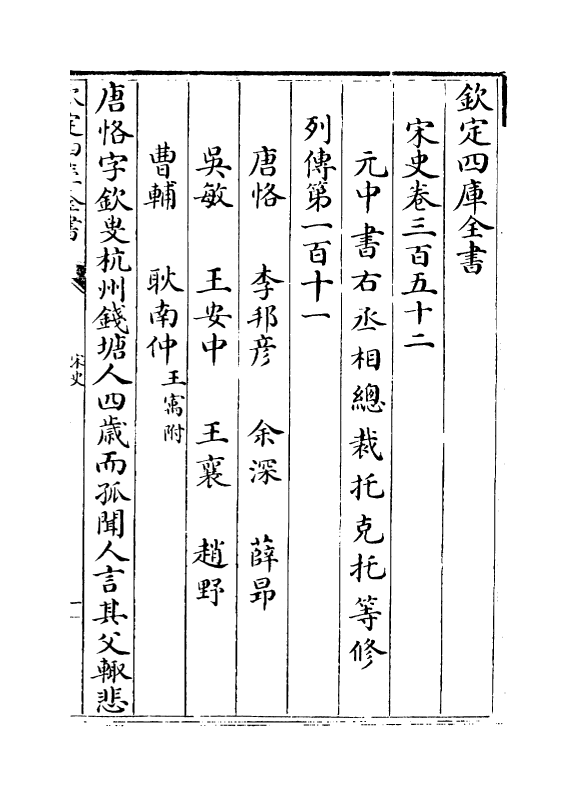 欽定四庫全書
宋史卷三百五十二
元中書右丞相總裁托克托等修
列傳第一百十一
唐恪 李邦彦 余深 薛昂
吳敏 王安中 王襄 趙野
曹輔 耿南仲王㝢附
唐恪字欽叟杭州錢塘人四歳而孤聞人言其父輙悲
欽定四庫全書
宋史
一